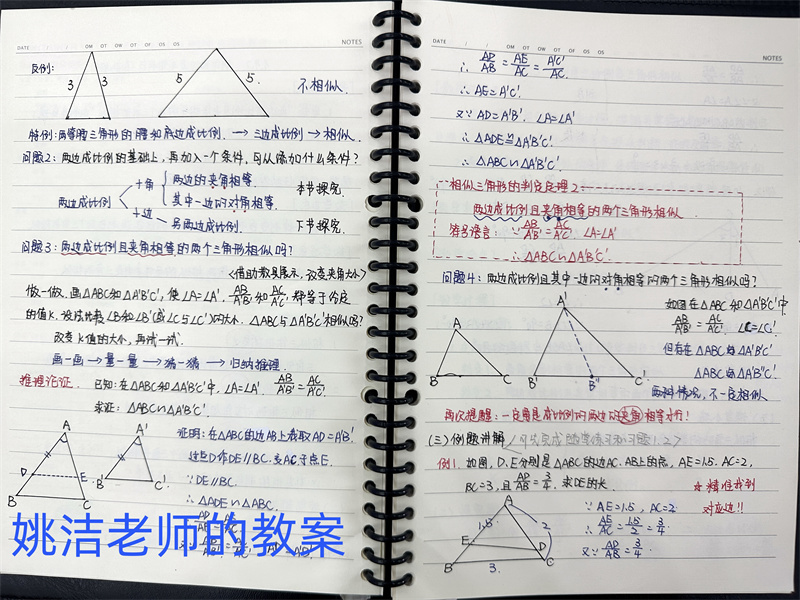 DATE / / OM OT OW OT OF OS OS NOTES
反例:
3 3 5 5 不相似.
特例: 两等腰三角形的腰和底边成比例. → 三边成比例 → 相似.
问题2: 两边成比例的基础上, 再加入一个条件, 可以添加什么条件?
两边成比例
+角 两边的夹角相等. 本节探究.
其中一边的对角相等.
+边 — 另两边成比例. 下节探究.
问题3: 两边成比例且夹角相等的两个三角形相似吗?
<借助教具展示, 改变夹角大小>
做一做. 画△ABC和△A'B'C', 使∠A=∠A', AB/A'B'和AC/A'C'都等于给定
的值k. 设法比较∠B和∠B'(或∠C与∠C')的大小. △ABC与△A'B'C'相似吗?
改变k值的大小, 再试一试.
画一画 → 量一量 → 猜一猜 → 归纳推理.
推理论证. 已知: 在△ABC和△A'B'C'中, ∠A=∠A'. AB/A'B'=AC/A'C'.
求证: △ABC∽△A'B'C'.
A A'
D E B' C'
B C
证明: 在△ABC的边AB上截取AD=A'B'.
过点D作DE∥BC. 交AC于点E.
∵DE∥BC.
∴△ADE∽△ABC.
姚洁老师的教案
DATE / / OM OT OW OT OF OS OS NOTES
∴ AD/AB=AE/AC=A'C'/AC.
∴ AE=A'C'.
又∵ AD=A'B'. ∠A=∠A'
∴ △ADE≌△A'B'C'.
∴ △ABC∽△A'B'C'.
相似三角形的判定定理2:
两边成比例且夹角相等的两个三角形相似.
符号语言: ∵ AB/A'B'=AC/A'C'. ∠A=∠A'
∴ △ABC∽△A'B'C'.
问题4: 两边成比例且其中一边的对角相等的两个三角形相似吗?
A
B C
A'
B' B'' C'
如图在△ABC和△A'B'C'中
AB/A'B'=AC/A'C'. ∠C=∠C'
但存在△ABC与△A'B'C'
△ABC与△A'B''C'
两种情况, 不一定相似
再次提醒: 一定角是成比例的两边的夹角相等才行!
(三) 例题讲解
例1. 如图, D、E分别是△ABC的边AC、AB上的点, AE=1.5, AC=2,
BC=3, 且AD/AB=3/4. 求DE的长.
☆ 精准找到
对应边!!
A
1.5 2
E D
B 3. C
∵ AE=1.5, AC=2
∴ AE/AC=1.5/2=3/4
又∵ AD/AB=3/4.